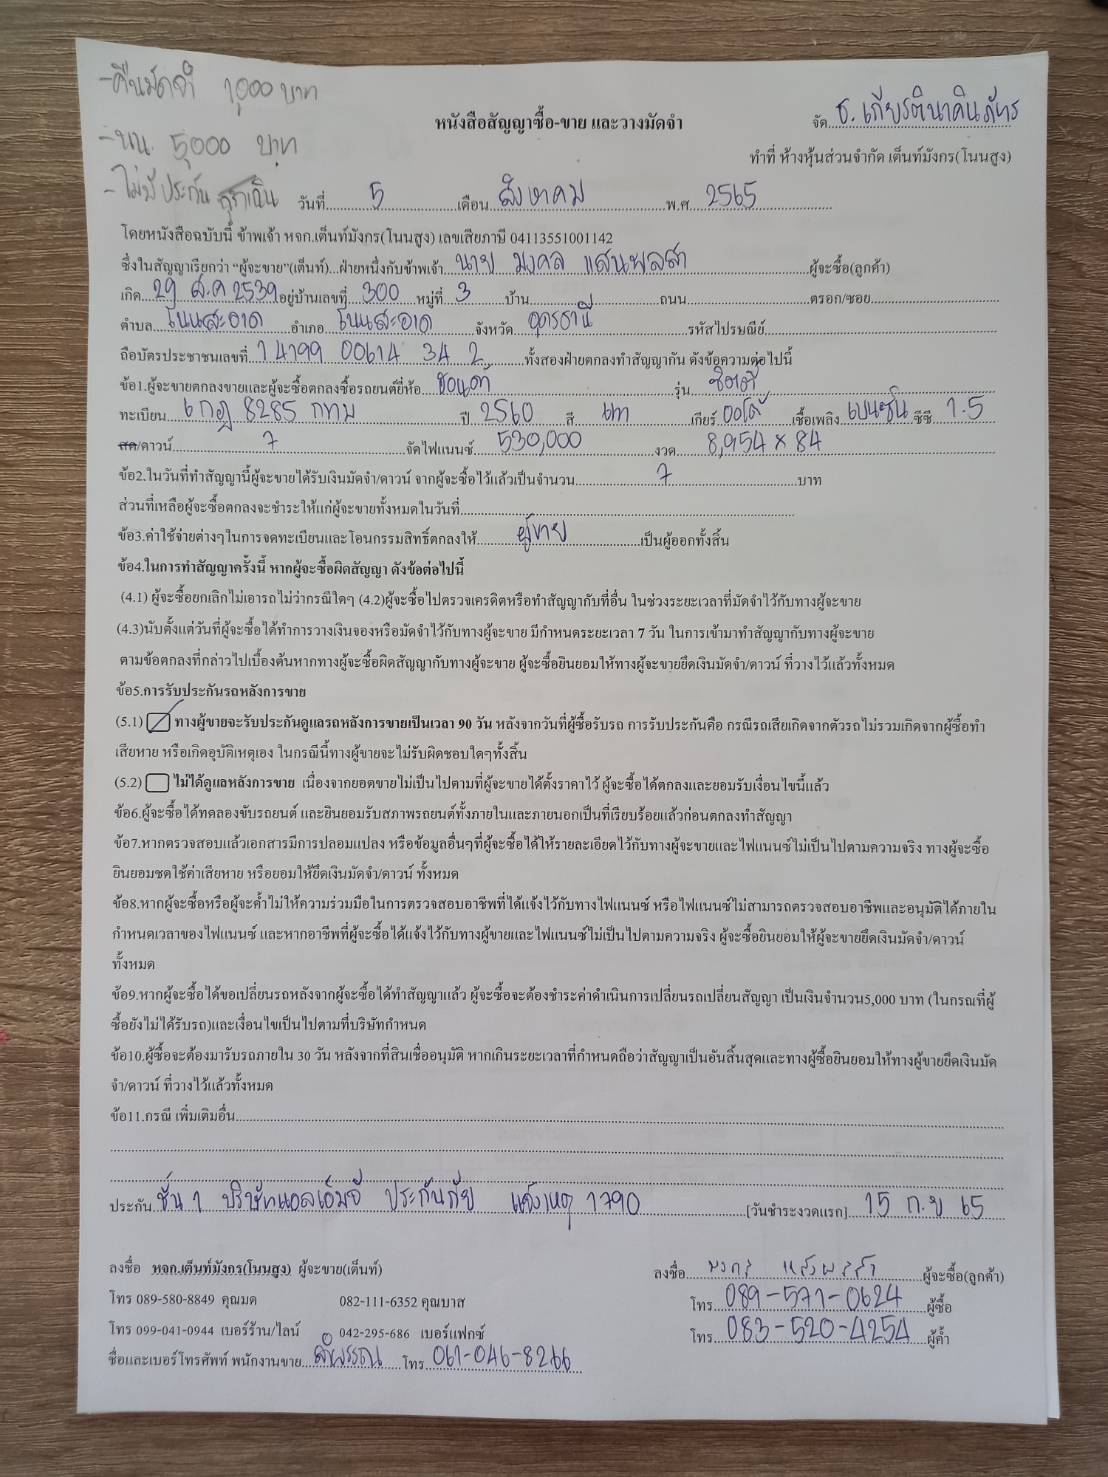 -คืนมัดจำ 1,000 บาท
หนังสือสัญญาซื้อ-ขาย และวางมัดจำ
จัด ธ.เกียรตินาคินภัทร
-นน. 5,000 บาท
ทำที่ ห้างหุ้นส่วนจำกัด เต็นท์มังกร(โนนสูง)
-ไม่มีประกัน ฉุกเฉิน วันที่ 5 เดือน สิงหาคม พ.ศ. 2565
โดยหนังสือฉบับนี้ ข้าพเจ้า หจก.เต็นท์มังกร(โนนสูง) เลขเสียภาษี 04113551001142
ซึ่งในสัญญาเรียกว่า “ผู้จะขาย”(เต็นท์)...ฝ่ายหนึ่งกับข้าพเจ้า นาย มงคล แสนพลสา ผู้จะซื้อ(ลูกค้า)
เกิด 29 ส.ค 2539 อยู่บ้านเลขที่ 300 หมู่ที่ 3 บ้าน ถนน ตรอก/ซอย
ตำบล โนนสะอาด อำเภอ โนนสะอาด จังหวัด อุดรธานี รหัสไปรษณีย์
ถือบัตรประชาชนเลขที่ 1 4199 00614 34 2 ทั้งสองฝ่ายตกลงทำสัญญากัน ดังข้อความต่อไปนี้
ข้อ1.ผู้จะขายตกลงขายและผู้จะซื้อตกลงซื้อรถยนต์ยี่ห้อ ฮอนด้า รุ่น ซิตตี้
ทะเบียน 6 กฎ 8285 กทม ปี 2560 สี เทา เกียร์ ออโต้ เชื้อเพลิง เบนซิน ซีซี 1.5
สด/ดาวน์ 7 จัดไฟแนนซ์ 530,000 งวด 8,954 x 84
ข้อ2.ในวันที่ทำสัญญานี้ผู้จะขายได้รับเงินมัดจำ/ดาวน์ จากผู้จะซื้อไว้แล้วเป็นจำนวน 7 บาท
ส่วนที่เหลือผู้จะซื้อตกลงจะชำระให้แก่ผู้จะขายทั้งหมดในวันที่
ข้อ3.ค่าใช้จ่ายต่างๆในการจดทะเบียนและโอนกรรมสิทธิ์ตกลงให้ ผู้ขาย เป็นผู้ออกทั้งสิ้น
ข้อ4.ในการทำสัญญาครั้งนี้ หากผู้จะซื้อผิดสัญญา ดังข้อต่อไปนี้
(4.1) ผู้จะซื้อยกเลิกไม่เอารถไม่ว่ากรณีใดๆ (4.2)ผู้จะซื้อไปตรวจเครดิตหรือทำสัญญากับที่อื่น ในช่วงระยะเวลาที่มัดจำไว้กับทางผู้จะขาย
(4.3)นับตั้งแต่วันที่ผู้จะซื้อได้ทำการวางเงินจองหรือมัดจำไว้กับทางผู้จะขาย มีกำหนดระยะเวลา 7 วัน ในการเข้ามาทำสัญญากับทางผู้จะขาย
ตามข้อตกลงที่กล่าวไปเบื้องต้นหากทางผู้จะซื้อผิดสัญญากับทางผู้จะขาย ผู้จะซื้อยินยอมให้ทางผู้จะขายยึดเงินมัดจำ/ดาวน์ ที่วางไว้แล้วทั้งหมด
ข้อ5.การรับประกันรถหลังการขาย
(5.1) ทางผู้ขายจะรับประกันดูแลรถหลังการขายเป็นเวลา 90 วัน หลังจากวันที่ผู้ซื้อรับรถ การรับประกันคือ กรณีรถเสียเกิดจากตัวรถไม่รวมเกิดจากผู้ซื้อทำ
เสียหาย หรือเกิดอุบัติเหตุเอง ในกรณีนี้ทางผู้ขายจะไม่รับผิดชอบใดๆทั้งสิ้น
(5.2) ไม่ได้ดูแลหลังการขาย เนื่องจากยอดขายไม่เป็นไปตามที่ผู้จะขายได้ตั้งราคาไว้ ผู้จะซื้อได้ตกลงและยอมรับเงื่อนไขนี้แล้ว
ข้อ6.ผู้จะซื้อได้ทดลองขับรถยนต์ และยินยอมรับสภาพรถยนต์ทั้งภายในและภายนอกเป็นที่เรียบร้อยแล้วก่อนตกลงทำสัญญา
ข้อ7.หากตรวจสอบแล้วเอกสารมีการปลอมแปลง หรือข้อมูลอื่นๆที่ผู้จะซื้อได้ให้รายละเอียดไว้กับทางผู้จะขายและไฟแนนซ์ไม่เป็นไปตามความจริง ทางผู้จะซื้อ
ยินยอมชดใช้ค่าเสียหาย หรือยอมให้ยึดเงินมัดจำ/ดาวน์ ทั้งหมด
ข้อ8.หากผู้จะซื้อหรือผู้จะค้ำไม่ให้ความร่วมมือในการตรวจสอบอาชีพที่ได้แจ้งไว้กับทางไฟแนนซ์ หรือไฟแนนซ์ไม่สามารถตรวจสอบอาชีพและอนุมัติได้ภายใน
กำหนดเวลาของไฟแนนซ์ และหากอาชีพที่ผู้จะซื้อได้แจ้งไว้กับทางผู้ขายและไฟแนนซ์ไม่เป็นไปตามความจริง ผู้จะซื้อยินยอมให้ผู้จะขายยึดเงินมัดจำ/ดาวน์
ทั้งหมด
ข้อ9.หากผู้จะซื้อได้ขอเปลี่ยนรถหลังจากผู้จะซื้อได้ทำสัญญาแล้ว ผู้จะซื้อจะต้องชำระค่าดำเนินการเปลี่ยนรถเปลี่ยนสัญญา เป็นเงินจำนวน5,000 บาท (ในกรณที่ผู้
ซื้อยังไม่ได้รับรถ)และเงื่อนไขเป็นไปตามที่บริษัทกำหนด
ข้อ10.ผู้ซื้อจะต้องมารับรถภายใน 30 วัน หลังจากที่สินเชื่ออนุมัติ หากเกินระยะเวลาที่กำหนดถือว่าสัญญาเป็นอันสิ้นสุดและทางผู้ซื้อยินยอมให้ทางผู้ขายยึดเงินมัด
จำ/ดาวน์ ที่วางไว้แล้วทั้งหมด
ข้อ11.กรณี เพิ่มเติมอื่น
ประกัน ชั้น 1 บริษัทแอลเอ็มจี ประกันภัย แจ้งเหตุ 1790 [วันชำระงวดแรก] 15 ก.ย 65
ลงชื่อ หจก.เต็นท์มังกร(โนนสูง) ผู้จะขาย(เต็นท์) ลงชื่อ มงคล แสนพลสา ผู้จะซื้อ(ลูกค้า)
โทร 089-580-8849 คุณมด 082-111-6352 คุณบาส โทร 089-571-0624 ผู้ซื้อ
โทร 099-041-0944 เบอร์ร้าน/ไลน์ 042-295-686 เบอร์แฟกซ์ โทร 083-520-4254 ผู้ค้ำ
ชื่อและเบอร์โทรศัพท์ พนักงานขาย ลำพรรณ โทร 061-046-8266